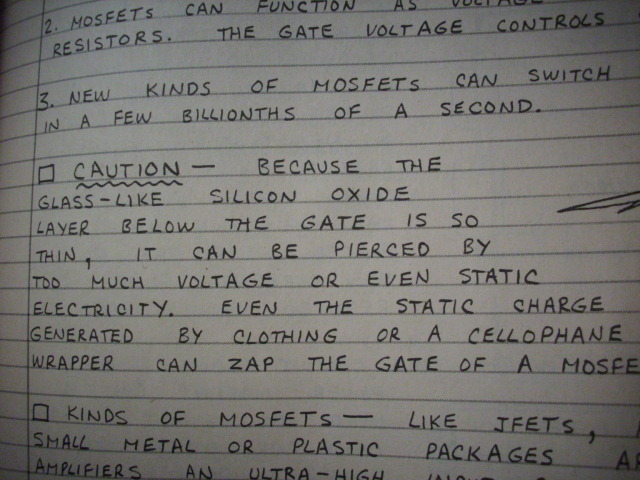 2. MOSFETS CAN FUNCTION AS VOLTAGE
RESISTORS. THE GATE VOLTAGE CONTROLS
3. NEW KINDS OF MOSFETS CAN SWITCH
IN A FEW BILLIONTHS OF A SECOND.
□ CAUTION — BECAUSE THE
GLASS-LIKE SILICON OXIDE
LAYER BELOW THE GATE IS SO
THIN, IT CAN BE PIERCED BY
TOO MUCH VOLTAGE OR EVEN STATIC
ELECTRICITY. EVEN THE STATIC CHARGE
GENERATED BY CLOTHING OR A CELLOPHANE
WRAPPER CAN ZAP THE GATE OF A MOSFE
□ KINDS OF MOSFETS — LIKE JFETS,
SMALL METAL OR PLASTIC PACKAGES
AMPLIFIERS AN ULTRA-HIGH